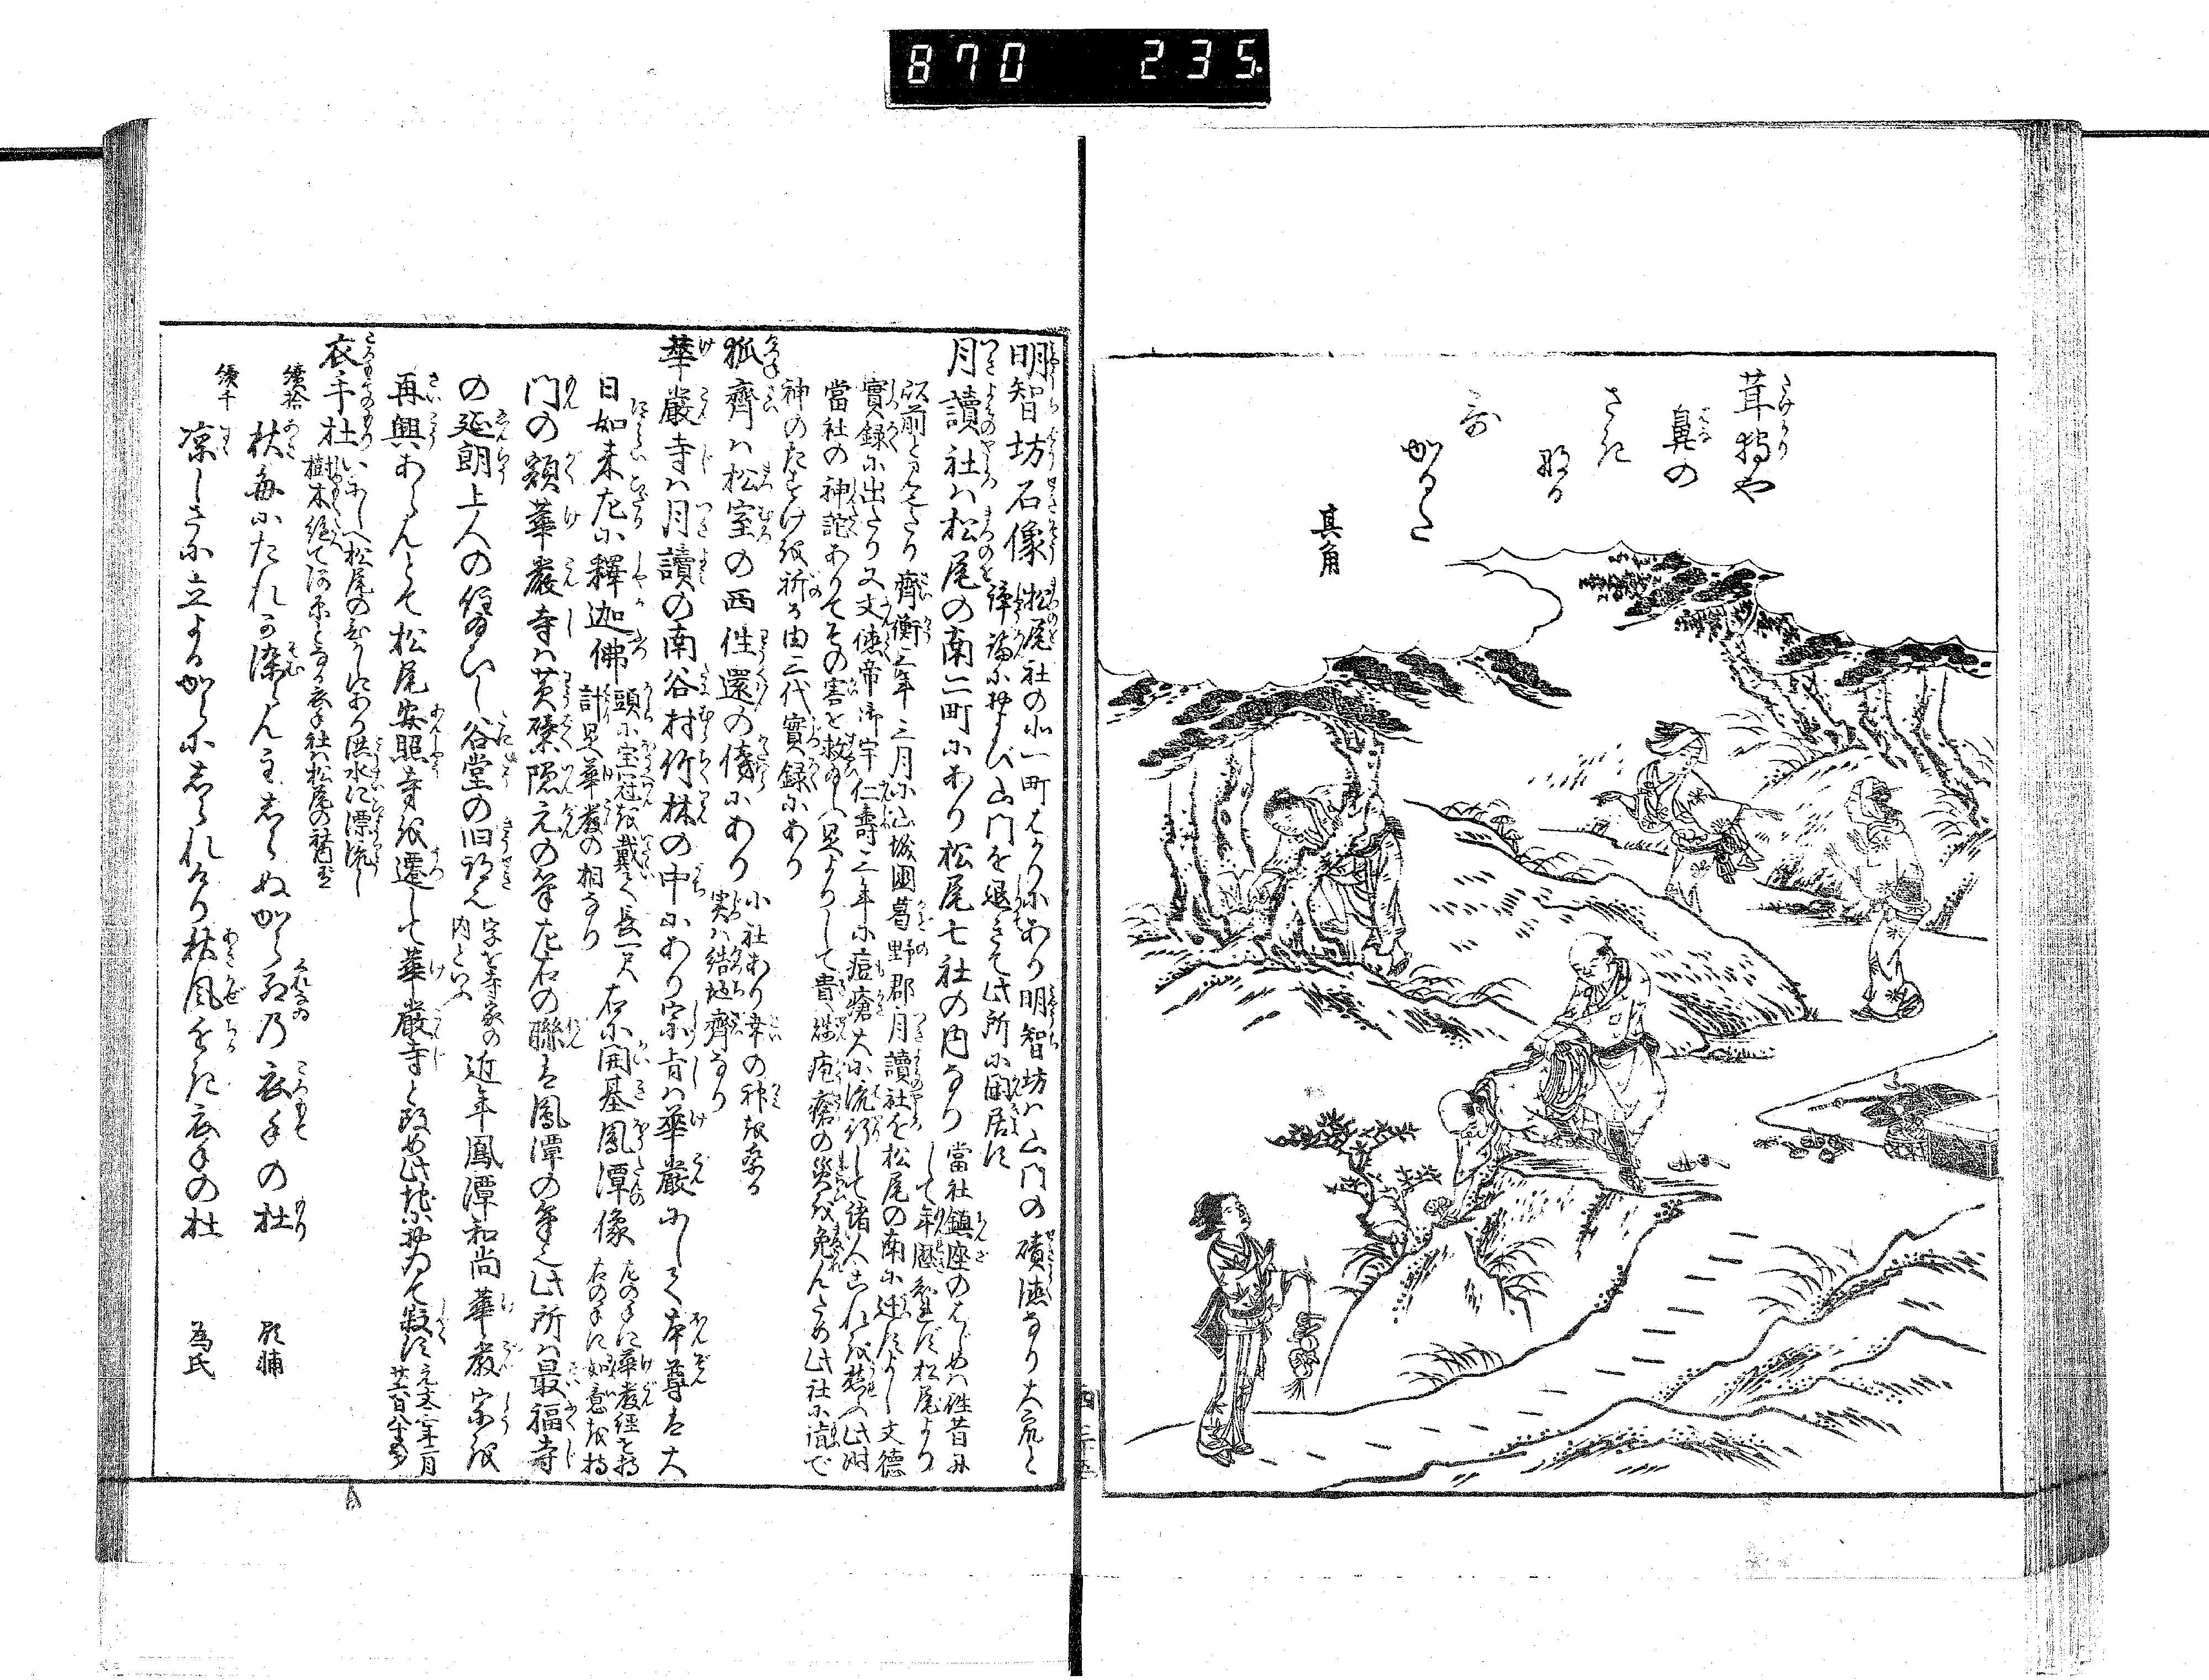 870 235
茸狩や
鼻の
さき
なる
歌
がるた
其角
明智坊石像
松尾社の北一町ばかりにあり明智坊は山門の碩徳なり大衆と
諍論におよび山門を退きて此所に閑居す
月讀社は松尾の南二町にあり松尾七社の内なり
當社鎮座のはじめは往昔
して年歴
松尾より
以前と見えたり齊衡三年三月に山城國葛野郡月讀社を松尾の南に遷すよし文德
實録に出たり又文德帝御宇仁壽三年に痘瘡大に流行して諸人これを愁へ此時
當社の神詫ありてその害を救給へ是よりして貴賤疱瘡の災を免んため此社に詣で
神のたすけを祈る由三代實録にあり
狐齊は松室の西往還の傍にあり
小社あり幸の神を祭る
実は結地齊なり
華嚴寺は月讀の南谷村竹林の中にあり宗旨は華嚴にして本尊は大
日如来左に釋迦佛
頭に宝冠を戴く長一尺
計是華嚴の相なり
右に開基鳳潭像
左の手に華嚴経を持
右の手に如意を持
門の額華嚴寺は黄檗隠元の筆左右の聯は鳳潭の筆也此所は最福寺
の延朗上人の住給ひし谷堂の旧跡也
字を寺家の
内といふ
近年鳳潭和尚華嚴宗を
再興あらんとて松尾安照寺を遷して華嚴寺と改め此地において寂す
元文三年二月
廿六日八十多
衣手杜
いにしへ松尾の
にあり洪水に漂流し
樹木絶て河原となる衣手社は松尾の
續拾
秋毎にたれか染らん主しらぬからゐ乃衣手の杜
為氏
續千
涼しさに立よるからにしられけり秋風ちかき衣手の杜
四ノ三十五